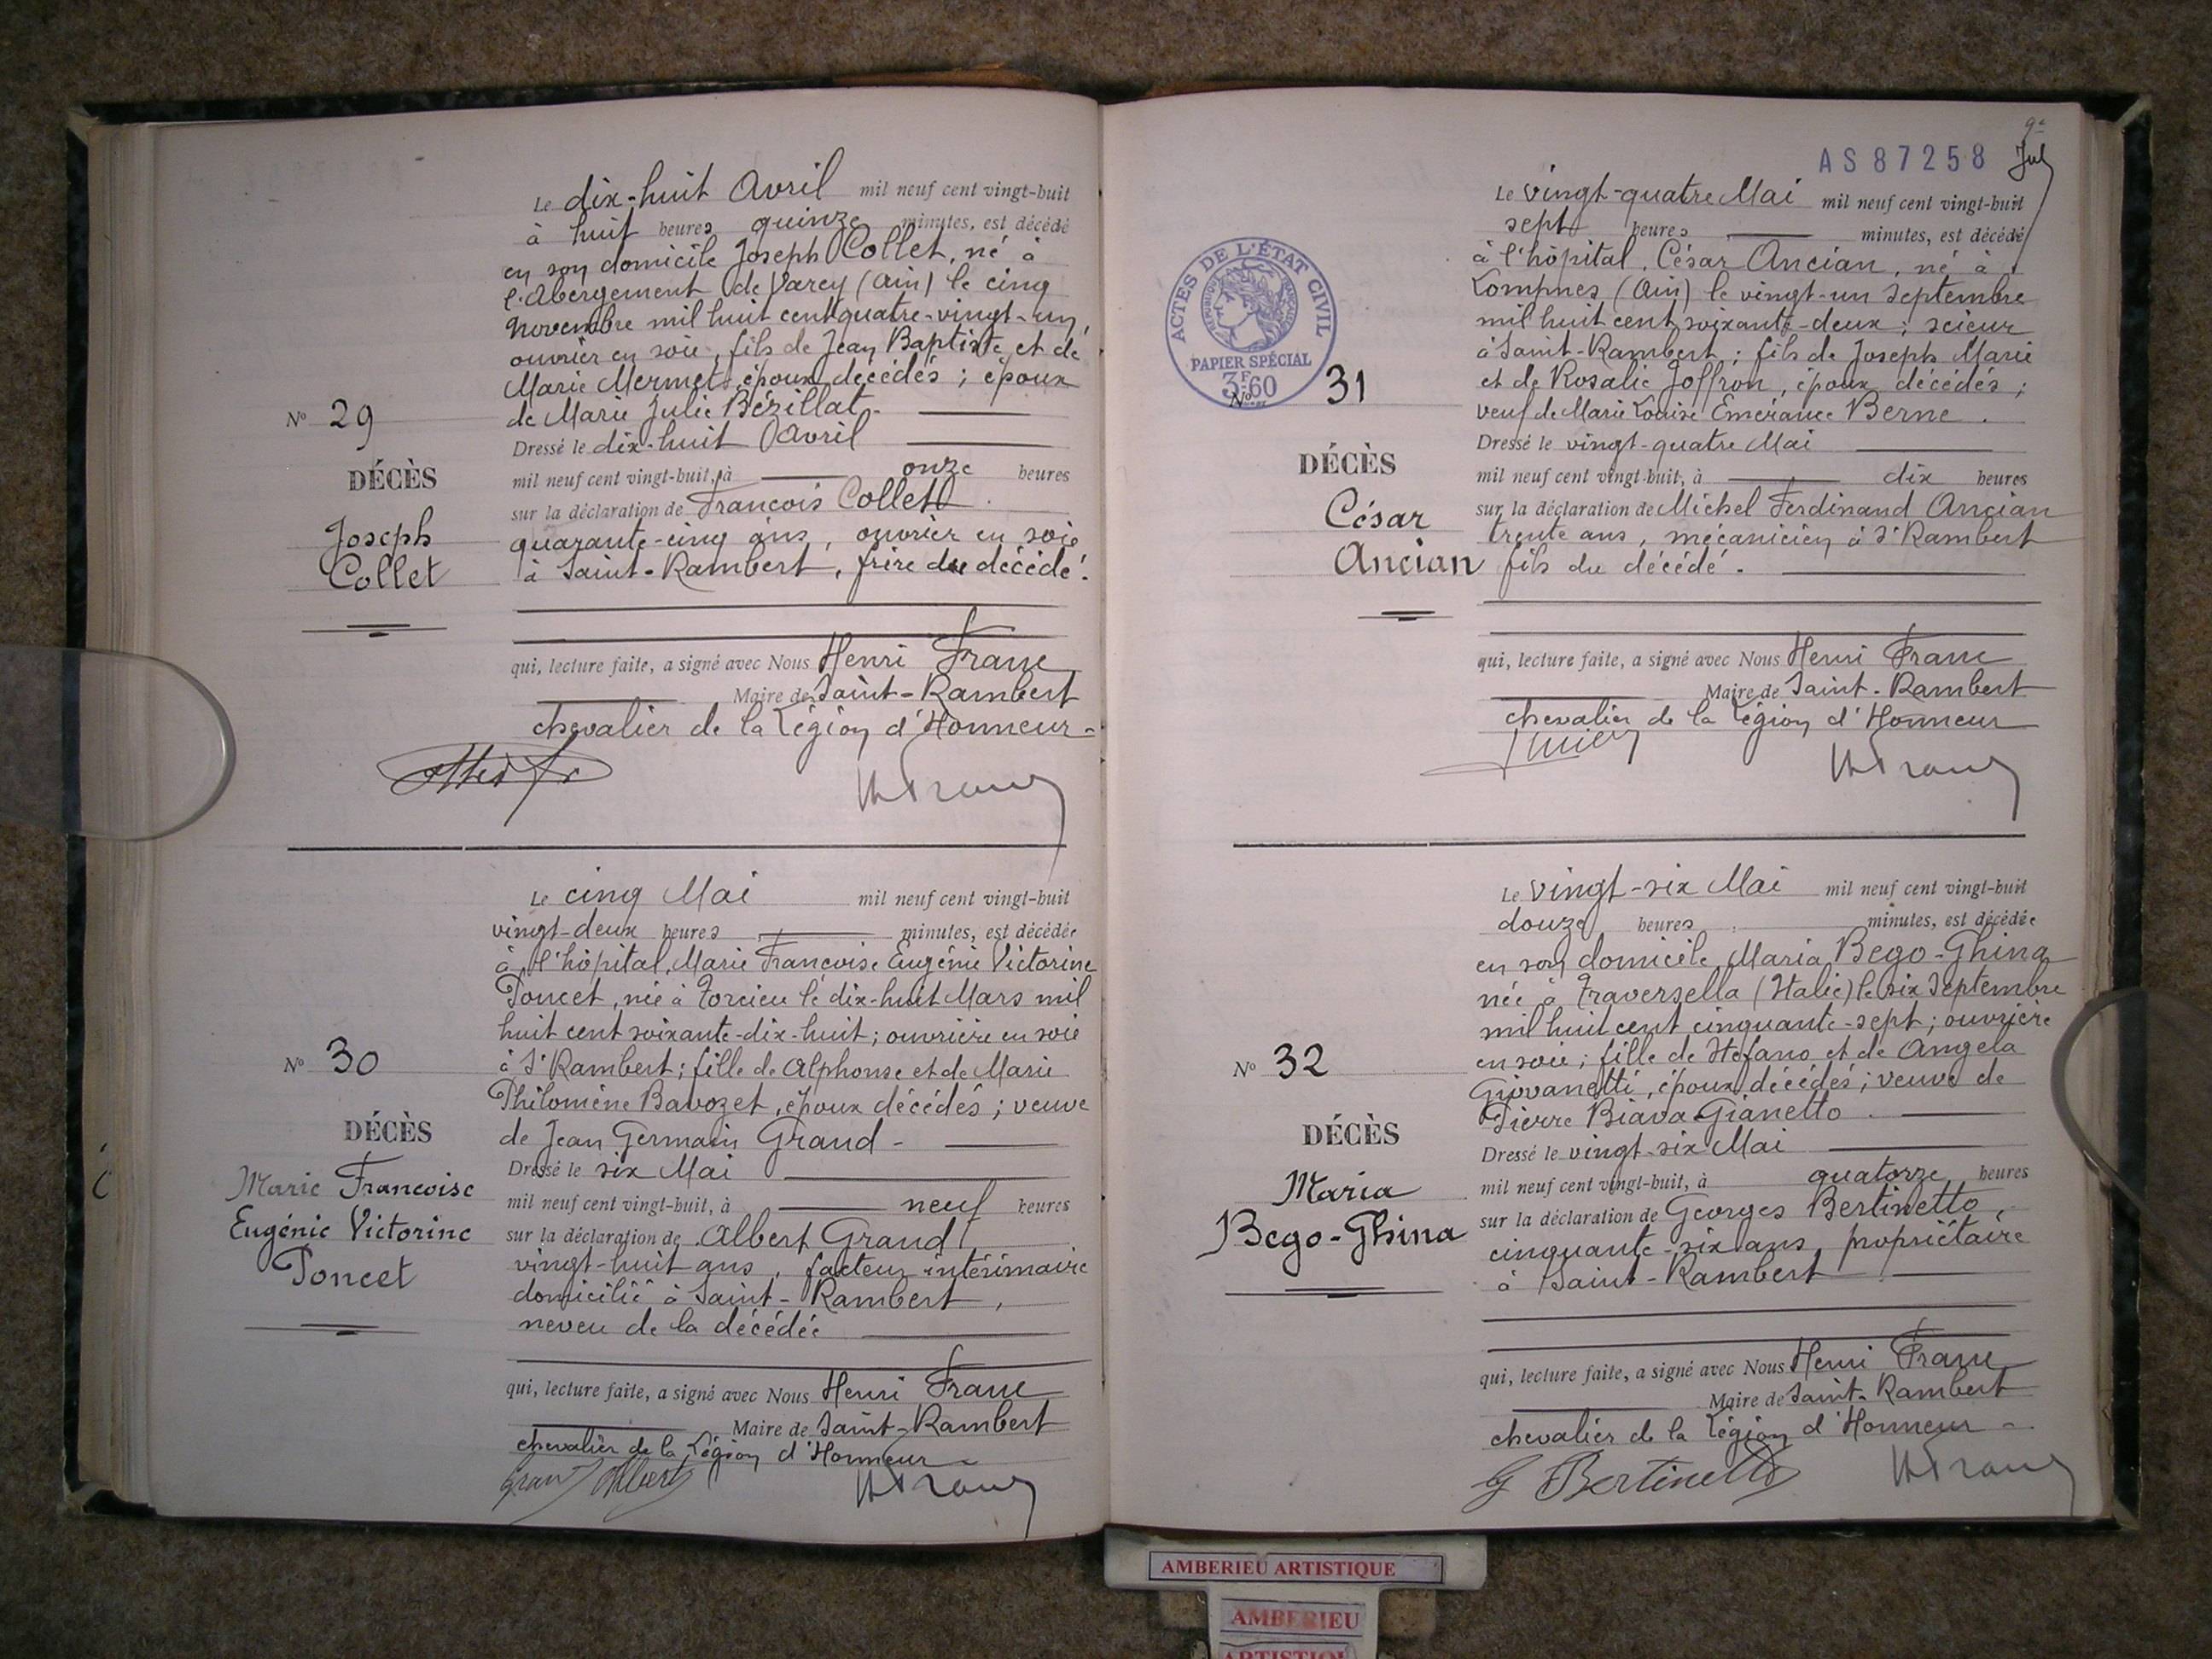 Le dix-huit Avril mil neuf cent vingt-huit
à huit heures quinze minutes, est décédé
en son domicile Joseph Collet, né à
l'Abergement de Varey (Ain) le cinq
Novembre mil huit cent quatre-vingt-un,
ouvrier en soie, fils de Jean Baptiste et de
Marie Mermet, époux décédés ; époux
de Marie Julie Bézillat.
Nº 29
Dressé le dix-huit Avril
DÉCÈS
mil neuf cent vingt-huit, à onze heures
sur la déclaration de François Collet
Joseph
Collet
quarante-cinq ans, ouvrier en soie
à Saint-Rambert, frère du décédé.
qui, lecture faite, a signé avec Nous Henri Franc
Maire de Saint-Rambert
chevalier de la Légion d'Honneur
HFranc
Le cinq Mai mil neuf cent vingt-huit
vingt-deux heures minutes, est décédée
à l'hôpital, Marie Françoise Eugénie Victorine
Poncet, née à Torcieu le dix-huit Mars mil
huit cent soixante-dix-huit ; ouvrière en soie
à St Rambert ; fille de Alphonse et de Marie
Philomène Bavozet, époux décédés ; veuve
de Jean Germain Grand -
Nº 30
Dressé le six Mai
DÉCÈS
mil neuf cent vingt-huit, à neuf heures
Marie Françoise
Eugénie Victorine
Poncet
sur la déclaration de Albert Grand
vingt-huit ans, facteur intérimaire
domicilié à Saint-Rambert,
neveu de la décédée
qui, lecture faite, a signé avec Nous Henri Franc
Maire de Saint-Rambert
chevalier de la Légion d'Honneur -
Grand Albert
HFranc
9e
AS87258
Le vingt-quatre Mai mil neuf cent vingt-huit
sept heures minutes, est décédé
à l'hôpital, César Ancian, né à
Lompnes (Ain) le vingt-un Septembre
mil huit cent soixante-deux ; scieur
à Saint-Rambert ; fils de Joseph Marie
et de Rosalie Joffron, époux décédés ;
veuf de Marie Louise Emérance Berne.
ACTES DE L'ÉTAT CIVIL
RÉPUBLIQUE FRANÇAISE
PAPIER SPÉCIAL
3F60
Nº 31
Dressé le vingt-quatre Mai
DÉCÈS
mil neuf cent vingt-huit, à dix heures
César
Ancian
sur la déclaration de Michel Ferdinand Ancian
trente ans, mécanicien à St Rambert
fils du décédé.
qui, lecture faite, a signé avec Nous Henri Franc
Maire de Saint-Rambert
chevalier de la Légion d'Honneur
HFranc
Le vingt-six Mai mil neuf cent vingt-huit
douze heures minutes, est décédée
en son domicile Maria Bego-Ghina
née à Traversella (Italie) le six Septembre
mil huit cent cinquante-sept ; ouvrière
en soie ; fille de Stefano et de Angela
Giovanetti, époux décédés ; veuve de
Pierre Biava-Gianetto.
Nº 32
Dressé le vingt-six Mai
DÉCÈS
mil neuf cent vingt-huit, à quatorze heures
Maria
Bego-Ghina
sur la déclaration de Georges Bertinetto,
cinquante-six ans, propriétaire
à Saint-Rambert
qui, lecture faite, a signé avec Nous Henri Franc
Maire de Saint-Rambert
chevalier de la Légion d'Honneur -
G Bertinetto
HFranc
AMBERIEU ARTISTIQUE
AMBERIEU
ARTISTIQUE